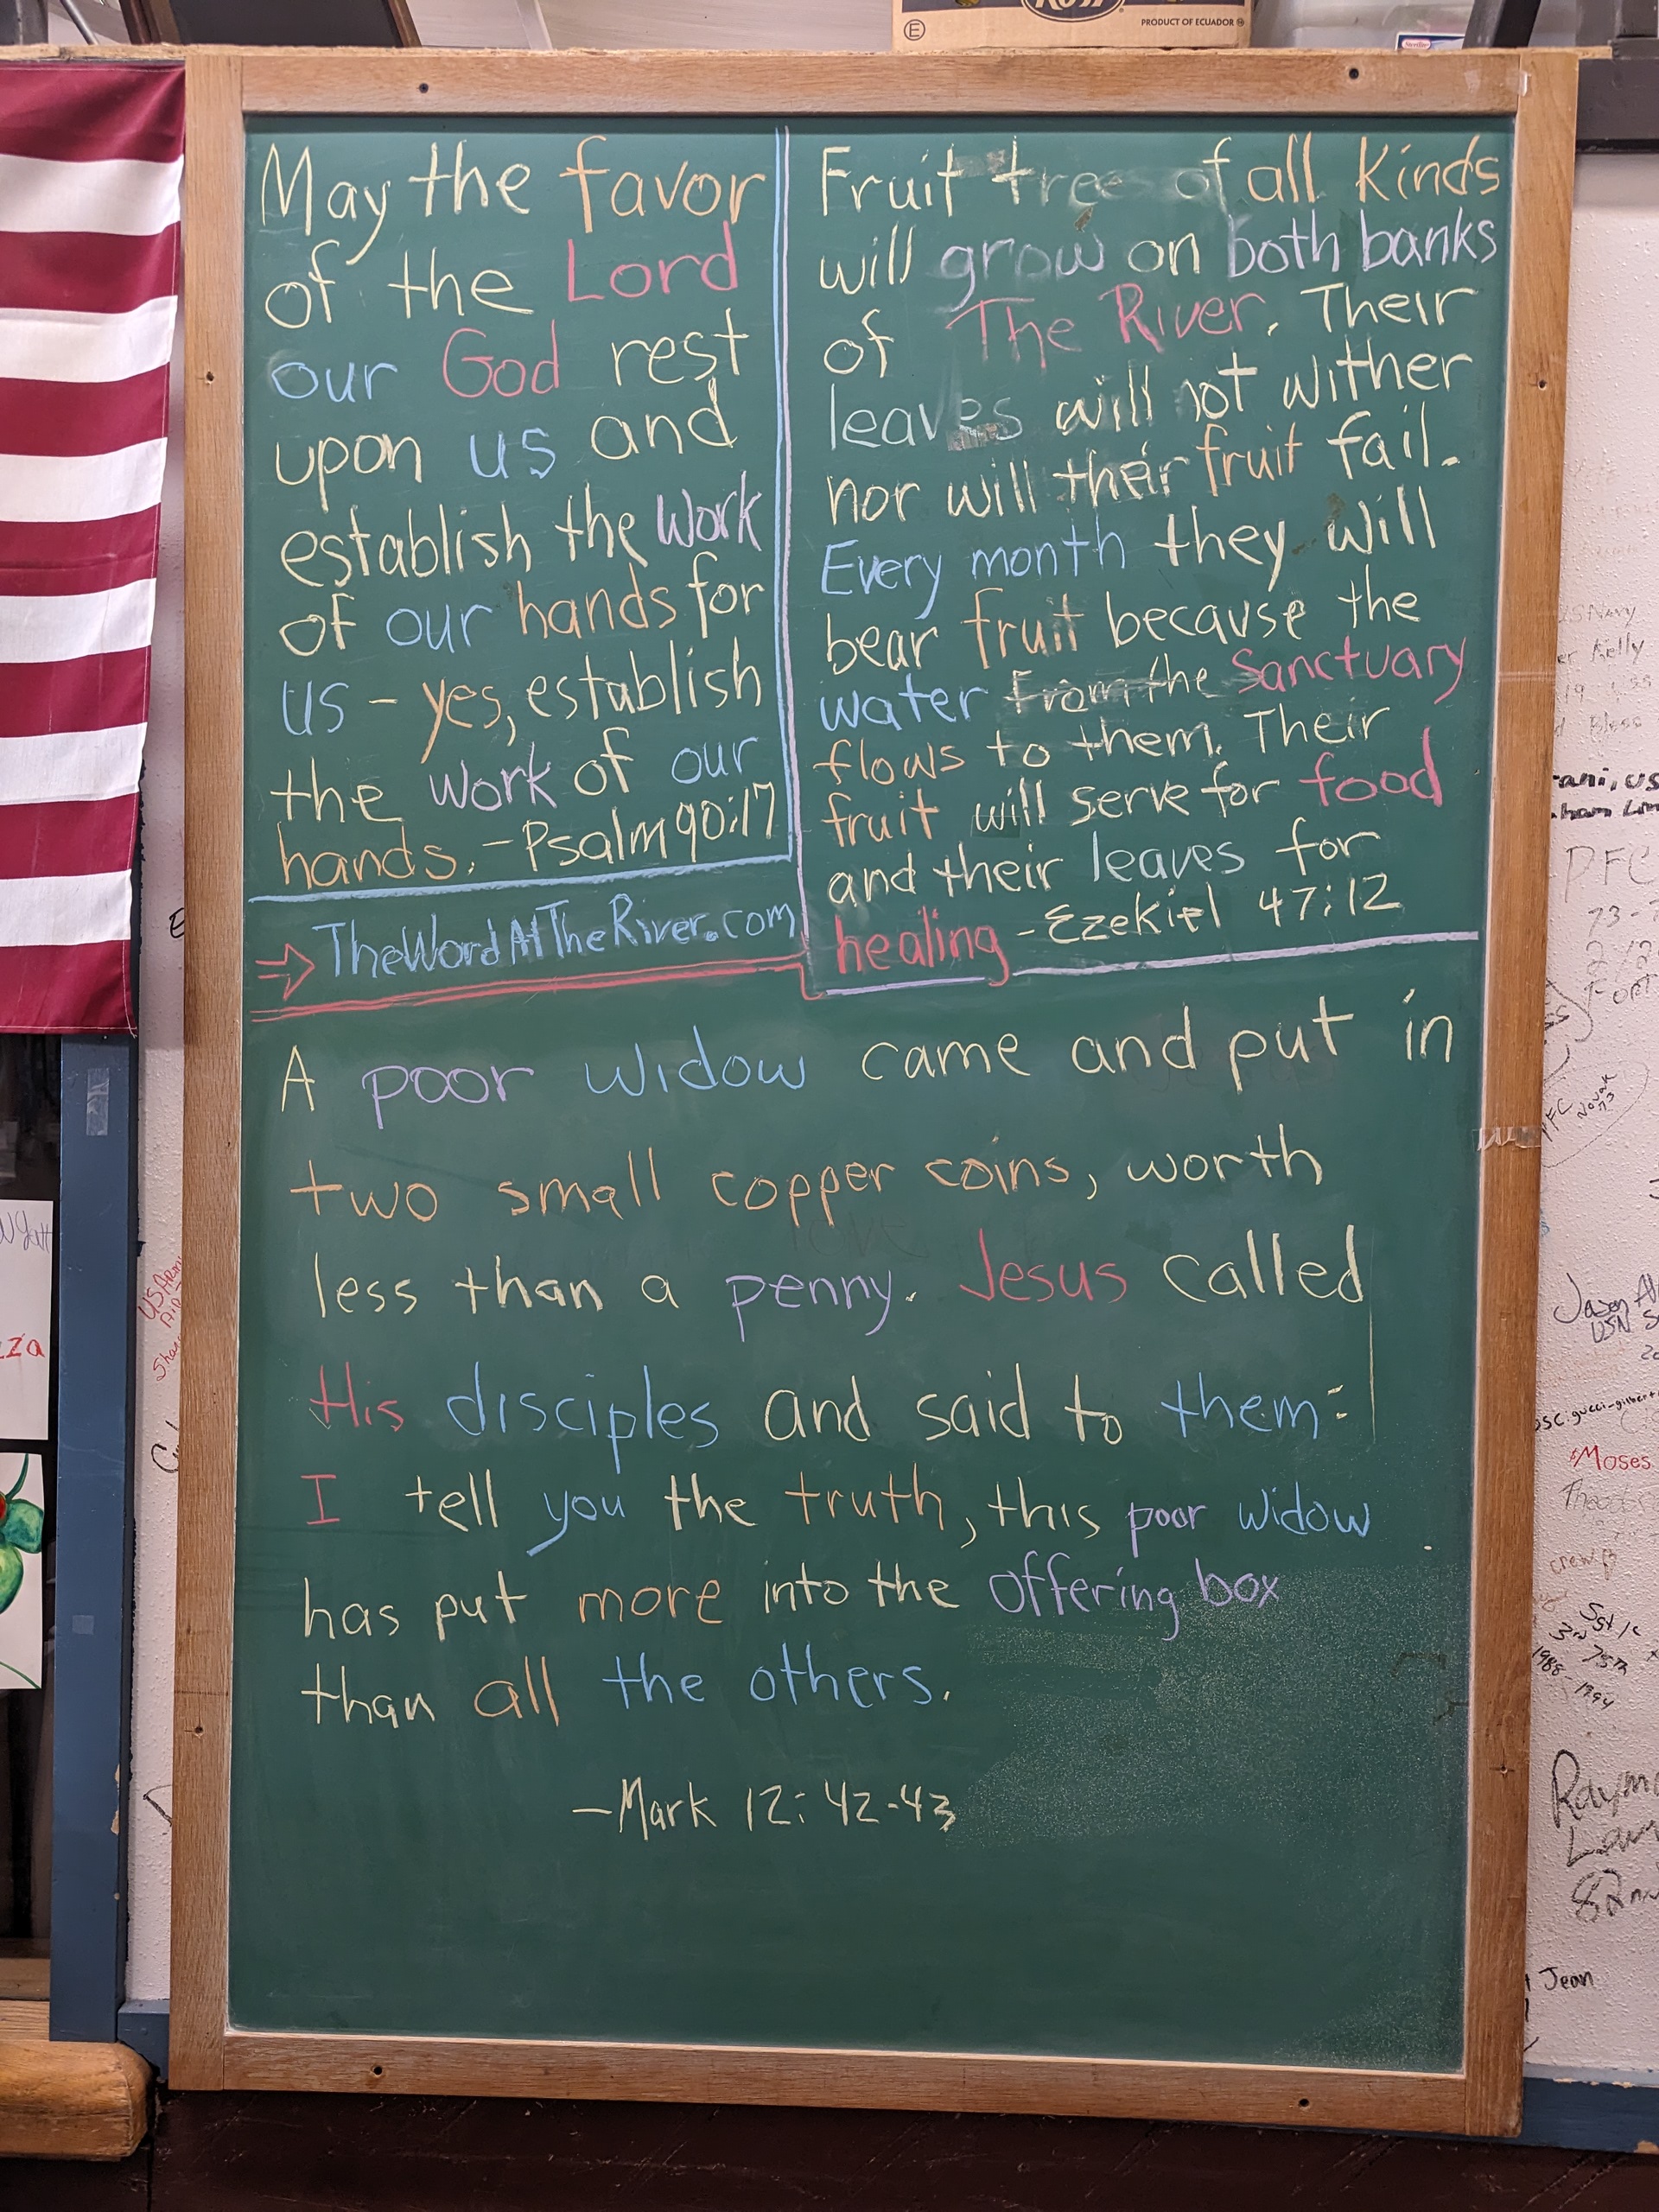 PRODUCT OF ECUADOR
May the favor
of the Lord
our God rest
upon us and
establish the work
of our hands for
us - yes, establish
the work of our
hands. - Psalm 90:17
TheWordAtTheRiver.com
Fruit trees of all Kinds
will grow on both banks
of The River. Their
leaves will not wither
nor will their fruit fail.
Every month they will
bear fruit because the
water from the Sanctuary
flows to them. Their
fruit will serve for food
and their leaves for
healing - Ezekiel 47:12
A poor widow came and put in
two small copper coins, worth
less than a penny. Jesus called
His disciples and said to them:
I tell you the truth, this poor widow
has put more into the offering box
than all the others.
- Mark 12:42-43
US Navy
Kelly
Bless
PFC
PFC
Novak
73
US Army
Jason
USN
Moses
1988-
1994
Jean